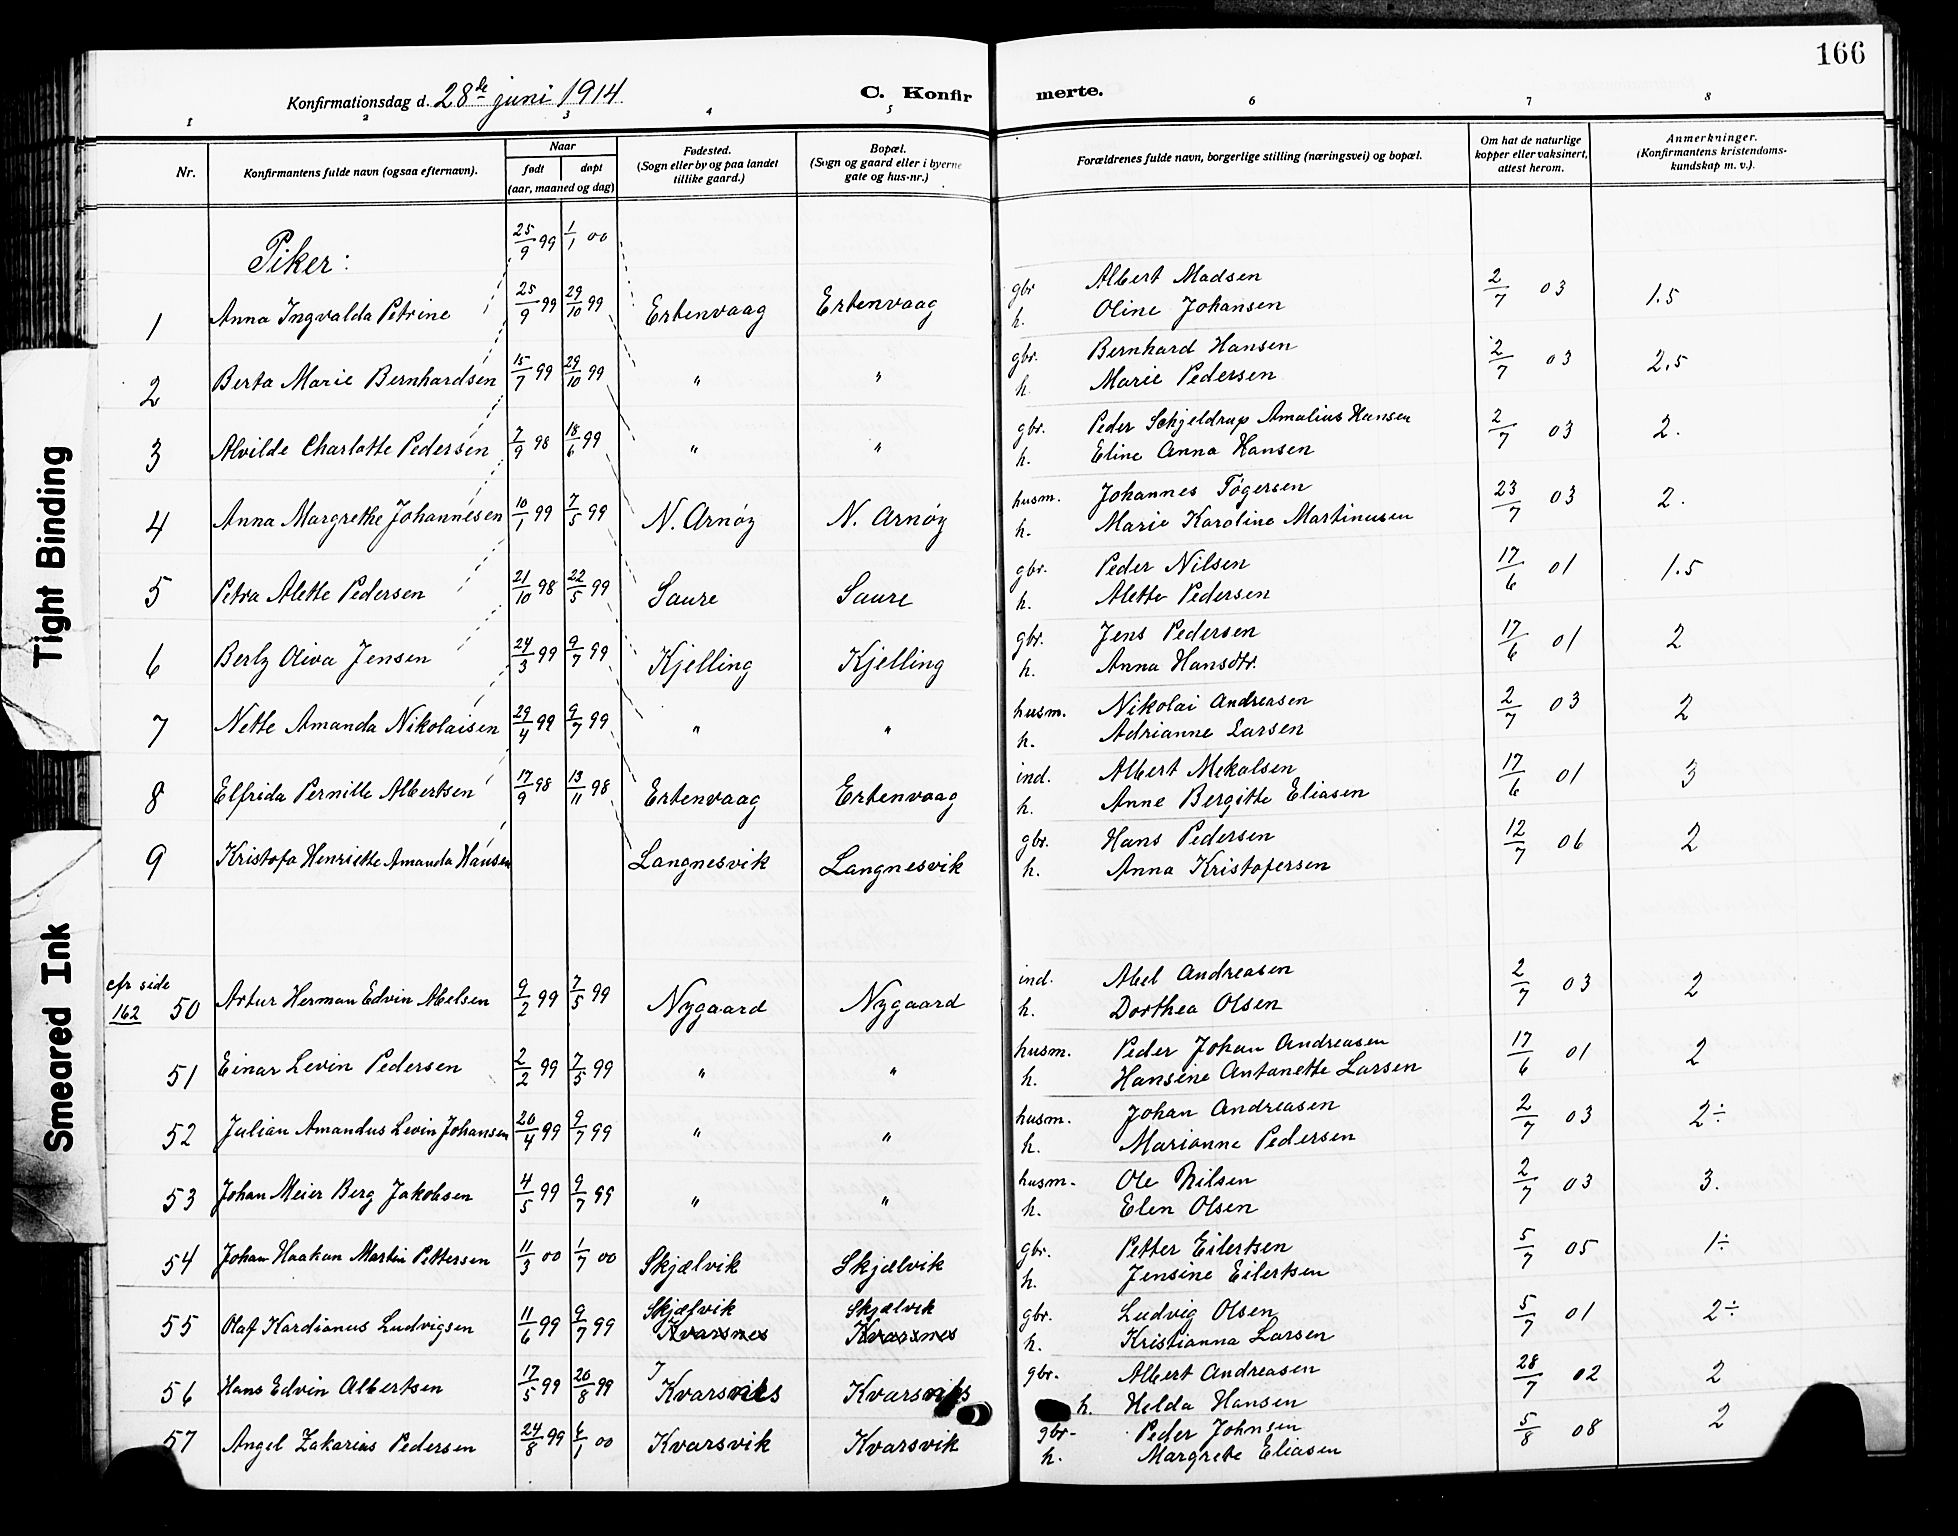 166
Konfirmationsdag d. 28de juni 1914 C. Konfirmerte.
1 2 3 4 5 6 7 8
Nr. Konfirmantens fulde navn (ogsaa efternavn). Naar født døpt (aar, maaned og dag) Fødested. (Sogn eller by og paa landet tillike gaard.) Bopæl. (Sogn og gaard eller i byerne gate og hus-nr.) Forældrenes fulde navn, borgerlige stilling (næringsvei) og bopæl. Om hat de naturlige kopper eller vaksinert, attest herom. Anmerkninger. (Konfirmantens kristendoms-kundskap m. v.).
Piker: 25/9 99 1/1 00
1 Anna Ingvalda Petrine 25/9 99 29/10 99 Ertenvaag Ertenvaag gbr Albert Madsen 2/7 03 1.5
h. Oline Johansen
2 Berta Marie Bernhardsen 15/7 99 29/10 99 " " gbr. Bernhard Hansen 2/7 03 2,5
h. Marie Pedersen
3 Alvilde Charlotte Pedersen 7/9 98 18/6 99 " " gbr. Peder Schjeldrup Amalius Hansen 2/7 03 2.
h. Eline Anna Hansen
4 Anna Margrethe Johannesen 10/1 99 7/5 99 N. Arnøy N. Arnøy husm. Johannes Tøgersen 23/7 03 2.
h. Marie Karoline Martinusen
5 Petra Alette Pedersen 21/10 98 22/5 99 Saure Saure gbr. Peder Nilsen 17/6 01 1.5
h. Alette Pedersen
6 Berly Oliva Jensen 24/3 99 9/7 99 Kjelling Kjelling gbr. Jens Pedersen 17/6 01 2
h. Anna Hansdtr.
7 Nette Amanda Nikolaisen 29/4 99 9/7 99 " " husm. Nikolai Andreasen 2/7 03 2
h. Adrianne Larsen
8 Elfrida Pernille Albertsen 17/9 98 13/11 98 Ertenvaag Ertenvaag ind. Albert Mekalsen 17/6 01 3
h. Anne Bergitte Eliasen
9 Kristofa Henriette Amanda Hansen Langnesvik Langnesvik gbr. Hans Pedersen 12/7 06 2
h. Anna Kristofersen
cfr side 162
50 Artur Herman Edvin Abelsen 9/2 99 7/5 99 Nygaard Nygaard ind. Abel Andreasen 2/7 03 2
h. Dorthea Olsen
51 Einar Levin Pedersen 2/2 99 7/5 99 " " husm. Peder Johan Andreasen 17/6 01 2
h. Hansine Antonette Larsen
52 Julian Amandus Levin Johansen 20/4 99 9/7 99 " " husm. Johan Andreasen 2/7 03 2÷
h. Marianne Pedersen
53 Johan Meier Berg Jakobsen 4/5 99 9/7 99 " " husm. Ole Nilsen 2/7 03 3.
h. Elen Olsen
54 Johan Haakon Martin Pettersen 11/3 00 1/7 00 Skjælvik Skjælvik gbr. Petter Eilertsen 5/7 05 1÷
h. Jensine Eilertsen
55 Olaf Kardianus Ludvigsen 11/6 99 9/7 99 Skjælvik Kvarsnes Skjælvik Kvarsnes gbr. Ludvig Olsen 5/7 01 2÷
h. Kristianna Larsen
56 Hans Edvin Albertsen 17/5 99 20/8 99 gbr. Albert Andreasen 28/7 02 2
h. Helda Hansen
57 Angel Zakarias Pedersen 24/8 99 1 00 Kvarsvik Kvarsvik gbr. Peder Johnsen 5/8 08 2
h. Margrete Eliasen
Tight Binding
Smeared Ink